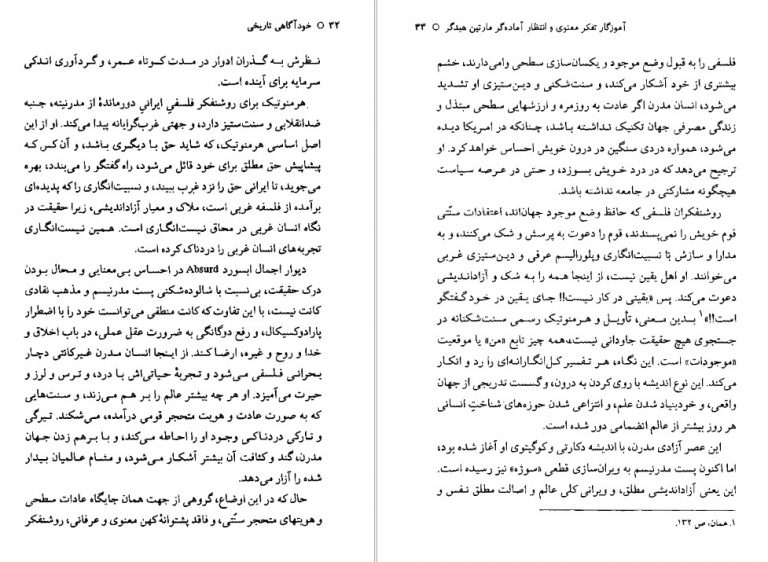 ۳۲ ○ خودآگاهی تاریخی
نظرش به گذران ادوار در مدت کوتاه عمر، و گردآوری اندکی
سرمایه برای آینده است.
هرمنوتیک، برای روشنفکر فلسفیِ ایرانیِ دورماندهٔ از مدرنیته، جنبه
ضدانقلابی و سنت‌ستیز دارد، و جهتی غرب‌گرایانه پیدا می‌کند. او از این
اصل اساسی هرمنوتیک، که شاید حق با دیگری باشد، و آن کس که
پیشاپیش حق مطلق برای خود قائل می‌شود، راه گفتگو را می‌بندد، بهره
می‌جوید، تا ایرانی حق را نزد غرب ببیند، و نسبیت‌انگاری را که پدیده‌ای
برآمده از فلسفه غربی است، ملاک و معیار آزاداندیشی، زیرا حقیقت در
نگاه انسان غربی در محاق نیست‌انگاری است. همین نیست‌انگاری
تجربه‌های انسان غربی را دردناک کرده است.
دیوار اجمال ابسورد Absurd در احساس بی‌معنایی و محال بودن
درک حقیقت، بی‌نسبت با شالوده‌شکنی پست مدرنیسم و مذهب نقادی
کانت نیست، با این تفاوت که کانت منطقی می‌توانست خود را با اضطرار
پارادوکسیکال، و رفع دوگانگی به ضرورت عقل عملی، در باب اخلاق و
خدا و روح و غیره، ارضا کند. از اینجا انسان مدرن غیرکانتی دچار
بحرانی فلسفی می‌شود و تجربهٔ حیاتی‌اش با درد، و ترس و لرز و
حیرت می‌آمیزد. او هر چه بیشتر عالم را بر هم می‌زند، و سنت‌هایی
که به صورت عادت و هویت متحجر قومی درآمده، می‌شکند. تیرگی
و تارکی دردناکی وجود او را احاطه می‌کند، و با برهم زدن جهان
مدرن، گند و کثافت آن بیشتر آشکار می‌شود، و مشام عالمیان بیدار
شده را آزار می‌دهد.
حال که در این اوضاع، گروهی از جهت همان جایگاه عادات سطحی
و هویتهای متحجر سنّتی، و فاقد پشتوانهٔ کهن معنوی و عرفانی، روشنفکر
آموزگار تفکر معنوی و انتظار آماده‌گر مارتین هیدگر ○ ۳۳
فلسفی را به قبول وضع موجود و یکسان‌سازی سطحی وامی‌دارند، خشم
بیشتری از خود آشکار می‌کند، و سنت‌شکنی و دین‌ستیزی او تشدید
می‌شود، انسان مدرن اگر عادت به روزمره و ارزشهایی سطحی مبتذل و
زندگی مصرفی جهان تکنیک نداشته باشد، چنانکه در امریکا دیده
می‌شود، همواره دردی سنگین در درون خویش احساس خواهد کرد. او
ترجیح می‌دهد که در درد خویش بسوزد، و حتی در عرصه سیاست
هیچگونه مشارکتی در جامعه نداشته باشد.
روشنفکران فلسفی که حافظ وضع موجود جهان‌اند، اعتقادات سنّتی
قوم خویش را نمی‌پسندند، قوم را دعوت به پرسش و شک می‌کنند، و به
مدارا و سازش با نسبیت‌انگاری و پلورالیسم عرفی و دین‌ستیزی غربی
می‌خوانند. او اهل یقین نیست، از اینجا همه را به شک و آزاداندیشی
دعوت می‌کند. پس «یقینی در کار نیست!! جای یقین در خود گفتگو
است!!»۱ بدین معنی، تأویل و هرمنوتیک رسمی سنت‌شکنانه در
جستجوی هیچ حقیقت جاودانی نیست، همه چیز تابع «من» یا موقعیت
«موجودات» است. این نگاه، هر تفسیر کل‌انگارانه‌ای را رد و انکار
می‌کند. این نوع اندیشه با روی کردن به درون، و گسست تدریجی از جهان
واقعی، و خودبنیاد شدن علم، و انتزاعی شدن حوزه‌های شناختِ انسانی
هر روز بیشتر از عالم انضمامی دور شده است.
این عصر آزادی مدرن، با اندیشه دکارتی و کوگیتوی او آغاز شده بود،
اما اکنون پست مدرنیسم به ویران‌سازی قطعی «سوژه» نیز رسیده است.
این یعنی آزاداندیشی مطلق، و ویرانی کلی عالم و اصالت مطلق نفس و
۱. همان، ص ۱۳۲.